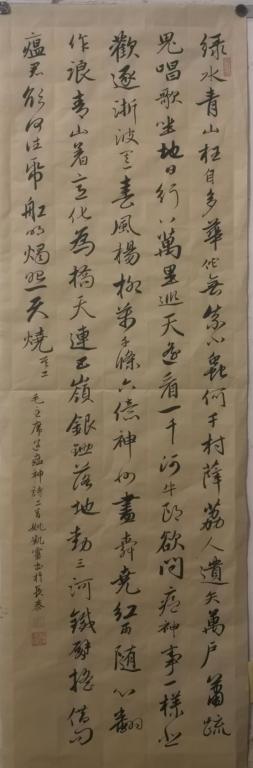 绿水青山枉自多華佗無奈小蟲何千村薜荔人遺矢萬戶蕭疏
鬼唱歌坐地日行八萬里巡天遙看一千河牛郎欲問瘟神事一樣悲
歡逐逝波其一春風楊柳萬千條六億神州盡舜堯紅雨隨心翻
作浪青山着意化為橋天連五嶺銀鋤落地動三河鐵臂搖借問
瘟君欲何往紙船明燭照天燒其二
毛主席送瘟神詩二首姚凱書於長泰